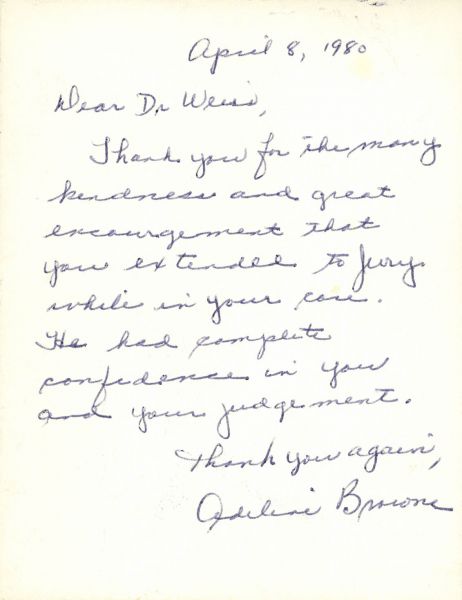 April 8, 1980
Dear Dr Weiss,
Thank you for the many
kindness and great
encouragement that
you extended to Jerry
while in your care.
He had complete
confidence in you
and your judgement.
Thank you again,
Adeline Browne